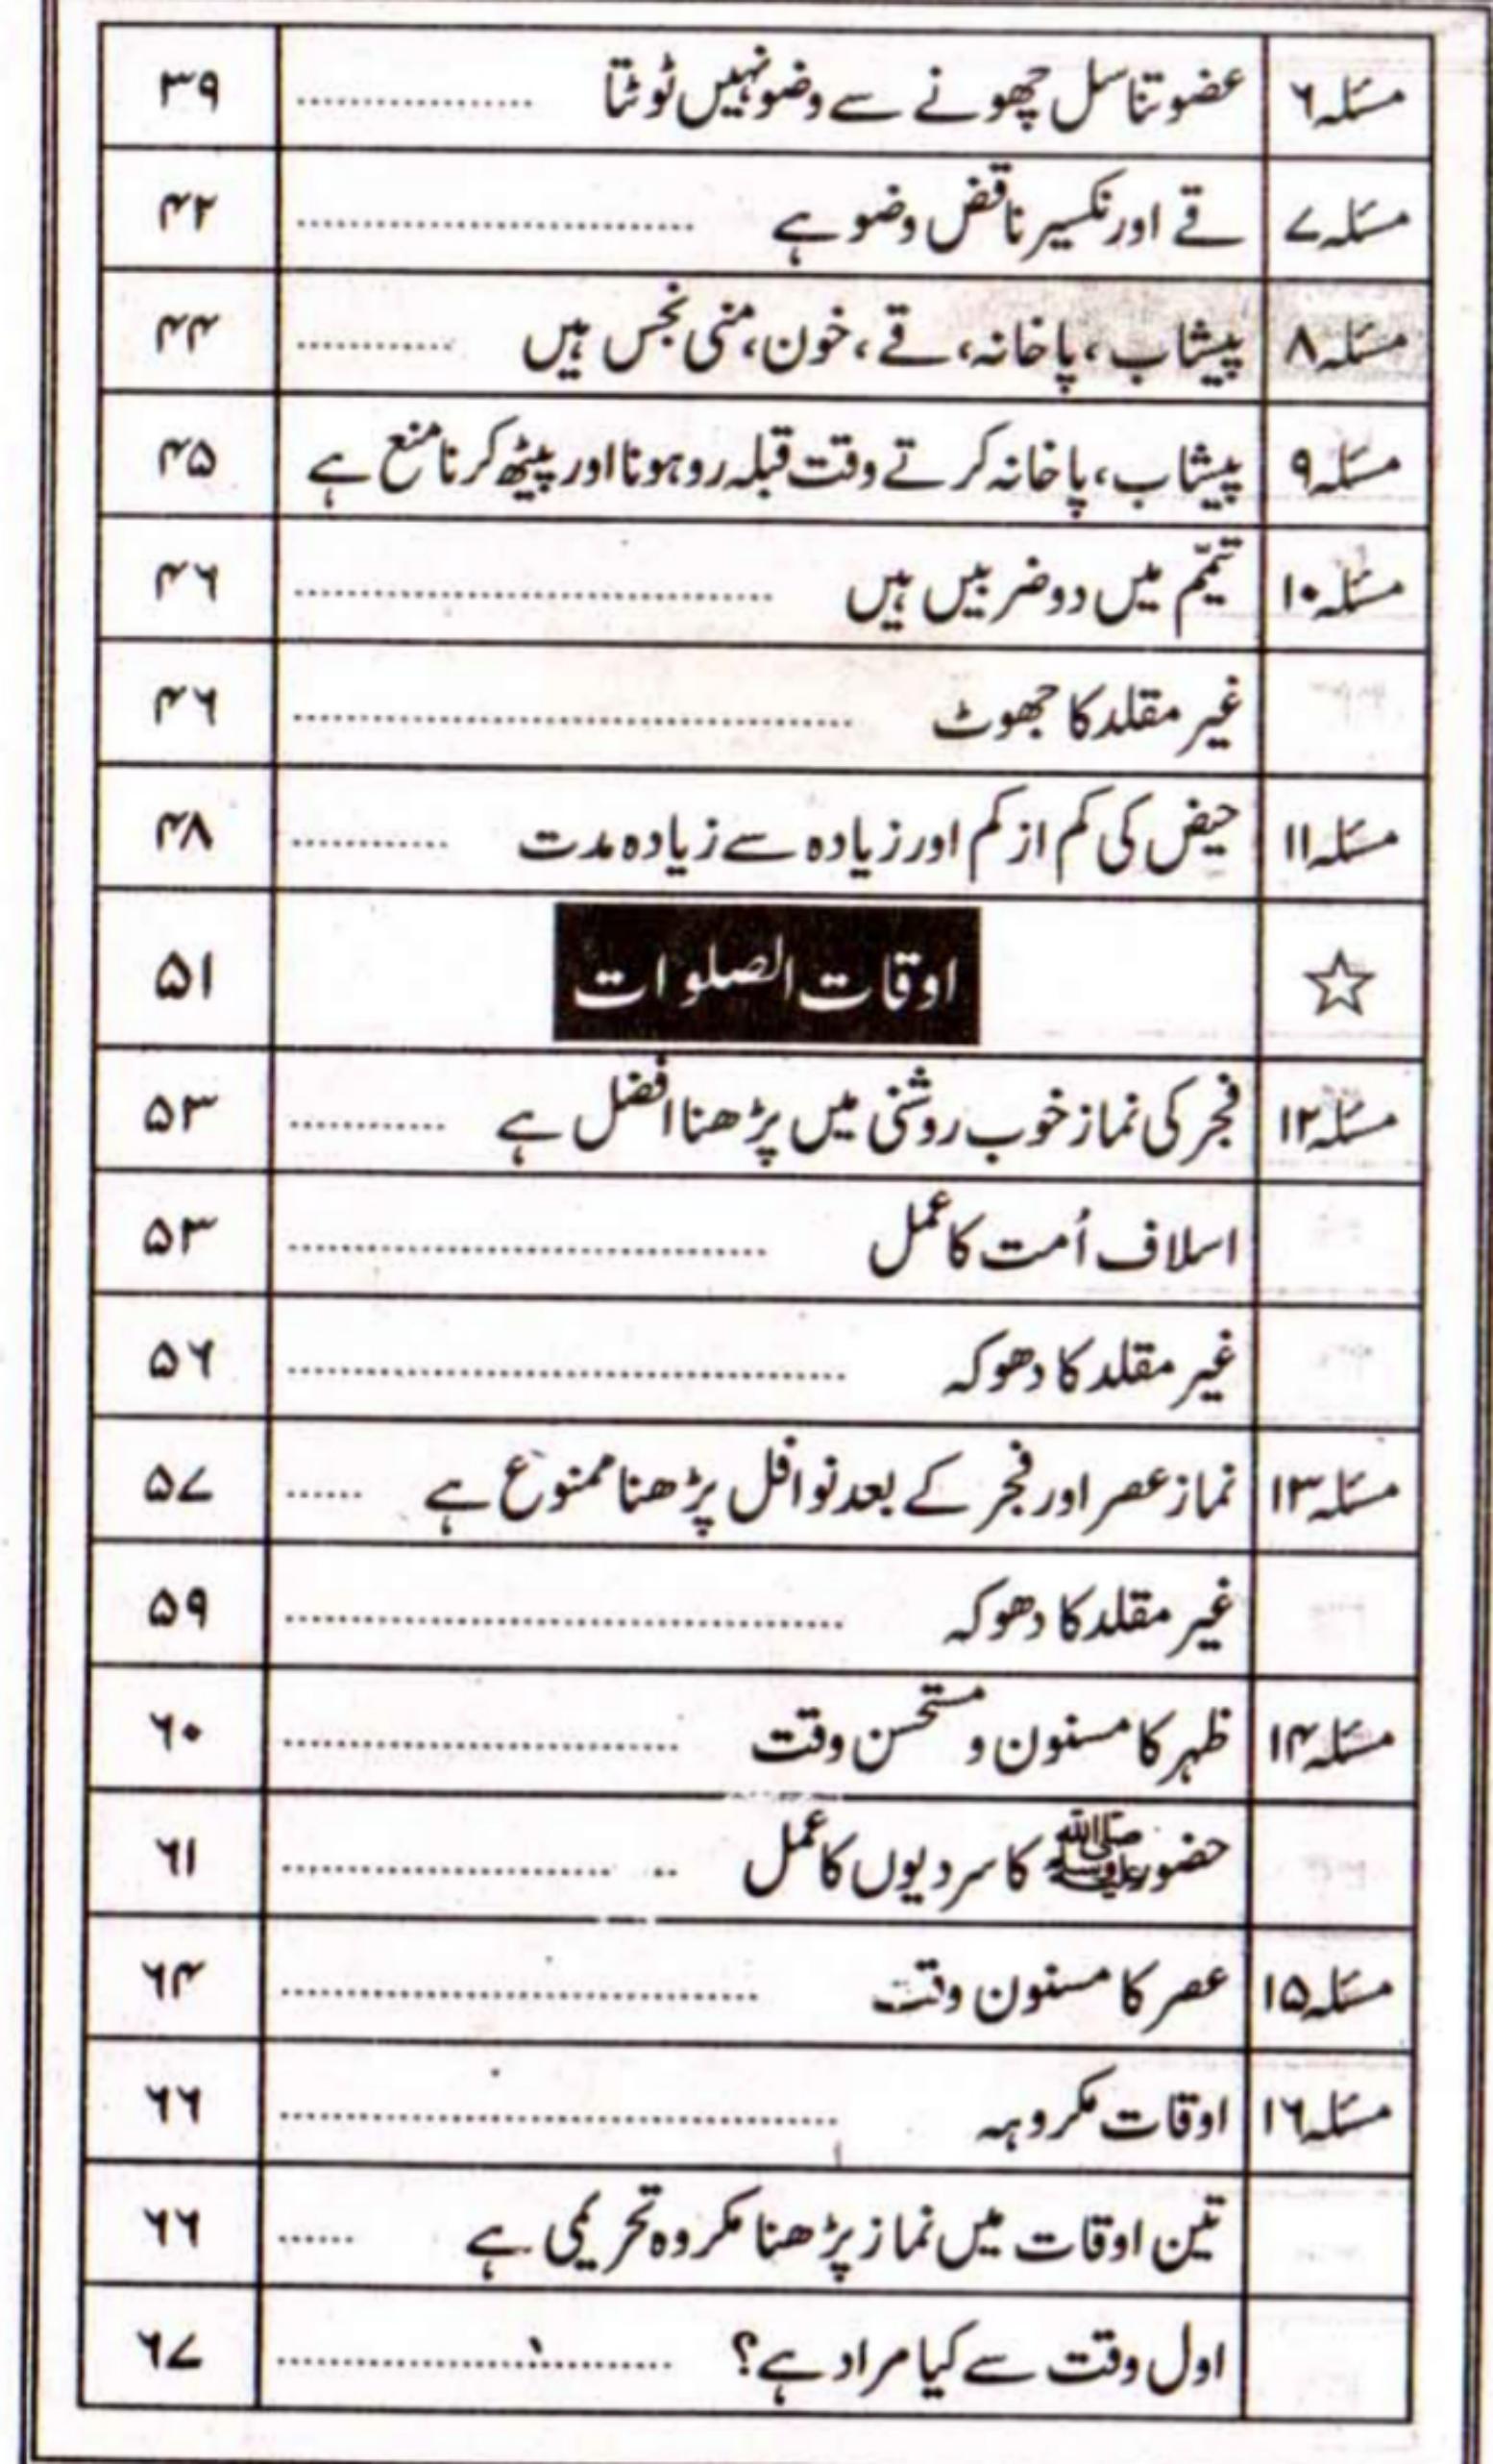 مسئلہ ۶ عضو تناسل چھونے سے وضو نہیں ٹوٹتا ۳۹
مسئلہ ۷ قے اور نکسیر ناقض وضو ہے ۴۲
مسئلہ ۸ پیشاب، پاخانہ، قے، خون، منی نجس ہیں ۴۴
مسئلہ ۹ پیشاب، پاخانہ کرتے وقت قبلہ رو ہونا اور پیٹھ کرنا منع ہے ۴۵
مسئلہ ۱۰ تیمّم میں دو ضربیں ہیں ۴۶
غیر مقلد کا جھوٹ ۴۶
مسئلہ ۱۱ حیض کی کم از کم اور زیادہ سے زیادہ مدت ۴۸
☆ اوقات الصلوات ۵۱
مسئلہ ۱۲ فجر کی نماز خوب روشنی میں پڑھنا افضل ہے ۵۳
اسلاف اُمت کا عمل ۵۳
غیر مقلد کا دھوکہ ۵۶
مسئلہ ۱۳ نماز عصر اور فجر کے بعد نوافل پڑھنا ممنوع ہے ۵۷
غیر مقلد کا دھوکہ ۵۹
مسئلہ ۱۴ ظہر کا مسنون و مستحسن وقت ۶۰
حضور ﷺ کا سردیوں کا عمل ۶۱
مسئلہ ۱۵ عصر کا مسنون وقت ۶۴
مسئلہ ۱۶ اوقات مکروہہ ۶۶
تین اوقات میں نماز پڑھنا مکروہ تحریمی ہے ۶۶
اول وقت سے کیا مراد ہے؟ ۶۷